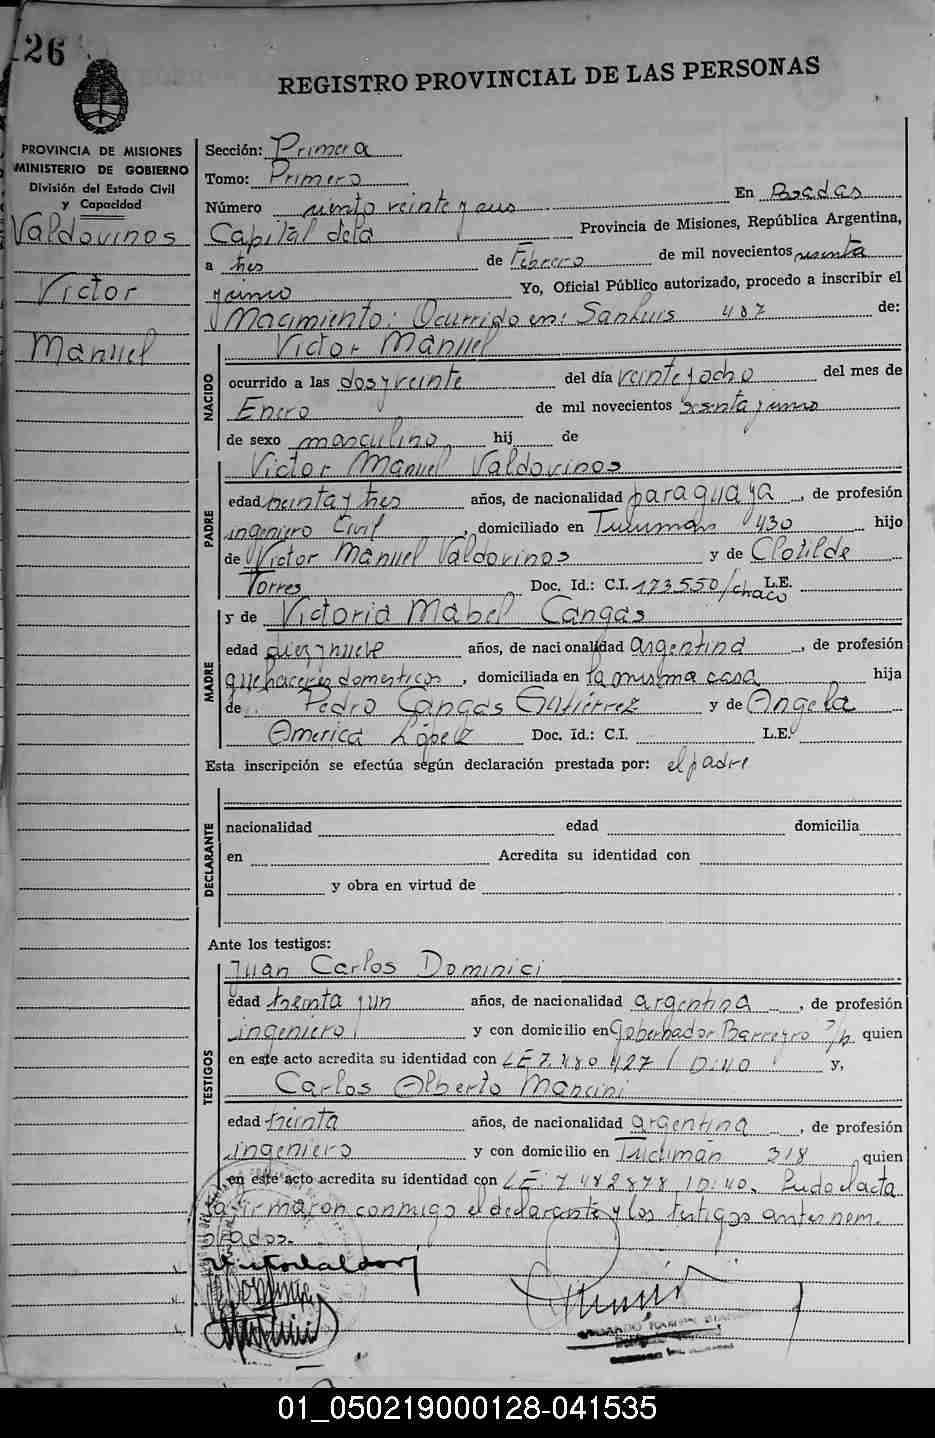 126
REGISTRO PROVINCIAL DE LAS PERSONAS
PROVINCIA DE MISIONES
MINISTERIO DE GOBIERNO
División del Estado Civil
y Capacidad
Valdovinos
Victor
Manuel
Sección: Primera
Tomo: Primero
Número ciento veinte y seis En Posadas
Capital de la Provincia de Misiones, República Argentina,
a tres de Febrero de mil novecientos sesenta
y uno Yo, Oficial Público autorizado, procedo a inscribir el
Nacimiento: Ocurrido en: San Luis 487 de:
NACIDO
Victor Manuel
ocurrido a las dos y veinte del día veinte y ocho del mes de
Enero de mil novecientos sesenta y uno
de sexo masculino, hij de
PADRE
Victor Manuel Valdovinos
edad treinta y tres años, de nacionalidad paraguaya, de profesión
ingeniero Civil, domiciliado en Tucuman 430 hijo
de Victor Manuel Valdovinos y de Clotilde
Torres Doc. Id.: C.I. 173.550/chaco L.E.
MADRE
y de Victoria Mabel Cangas
edad diez y nueve años, de nacionalidad argentina, de profesión
quehaceres domesticos, domiciliada en la misma casa hija
de Pedro Cangas Gutiérrez y de Angela
America López Doc. Id.: C.I. L.E.
Esta inscripción se efectúa según declaración prestada por: el padre
DECLARANTE
nacionalidad edad domicilia
en Acredita su identidad con
y obra en virtud de
Ante los testigos:
TESTIGOS
Juan Carlos Dominici
edad treinta y un años, de nacionalidad argentina, de profesión
ingeniero y con domicilio en Gobernador Barreyro quien
en este acto acredita su identidad con L E 7.480.427 / D:40 y,
Carlos Alberto Mancini
edad treinta años, de nacionalidad argentina, de profesión
ingeniero y con domicilio en Tucumán 318 quien
en este acto acredita su identidad con L E: 7.482.878 / D:40. Leída el acta
la firmaron conmigo el declarante y los testigos antes nom.
brados.
01_050219000128-041535